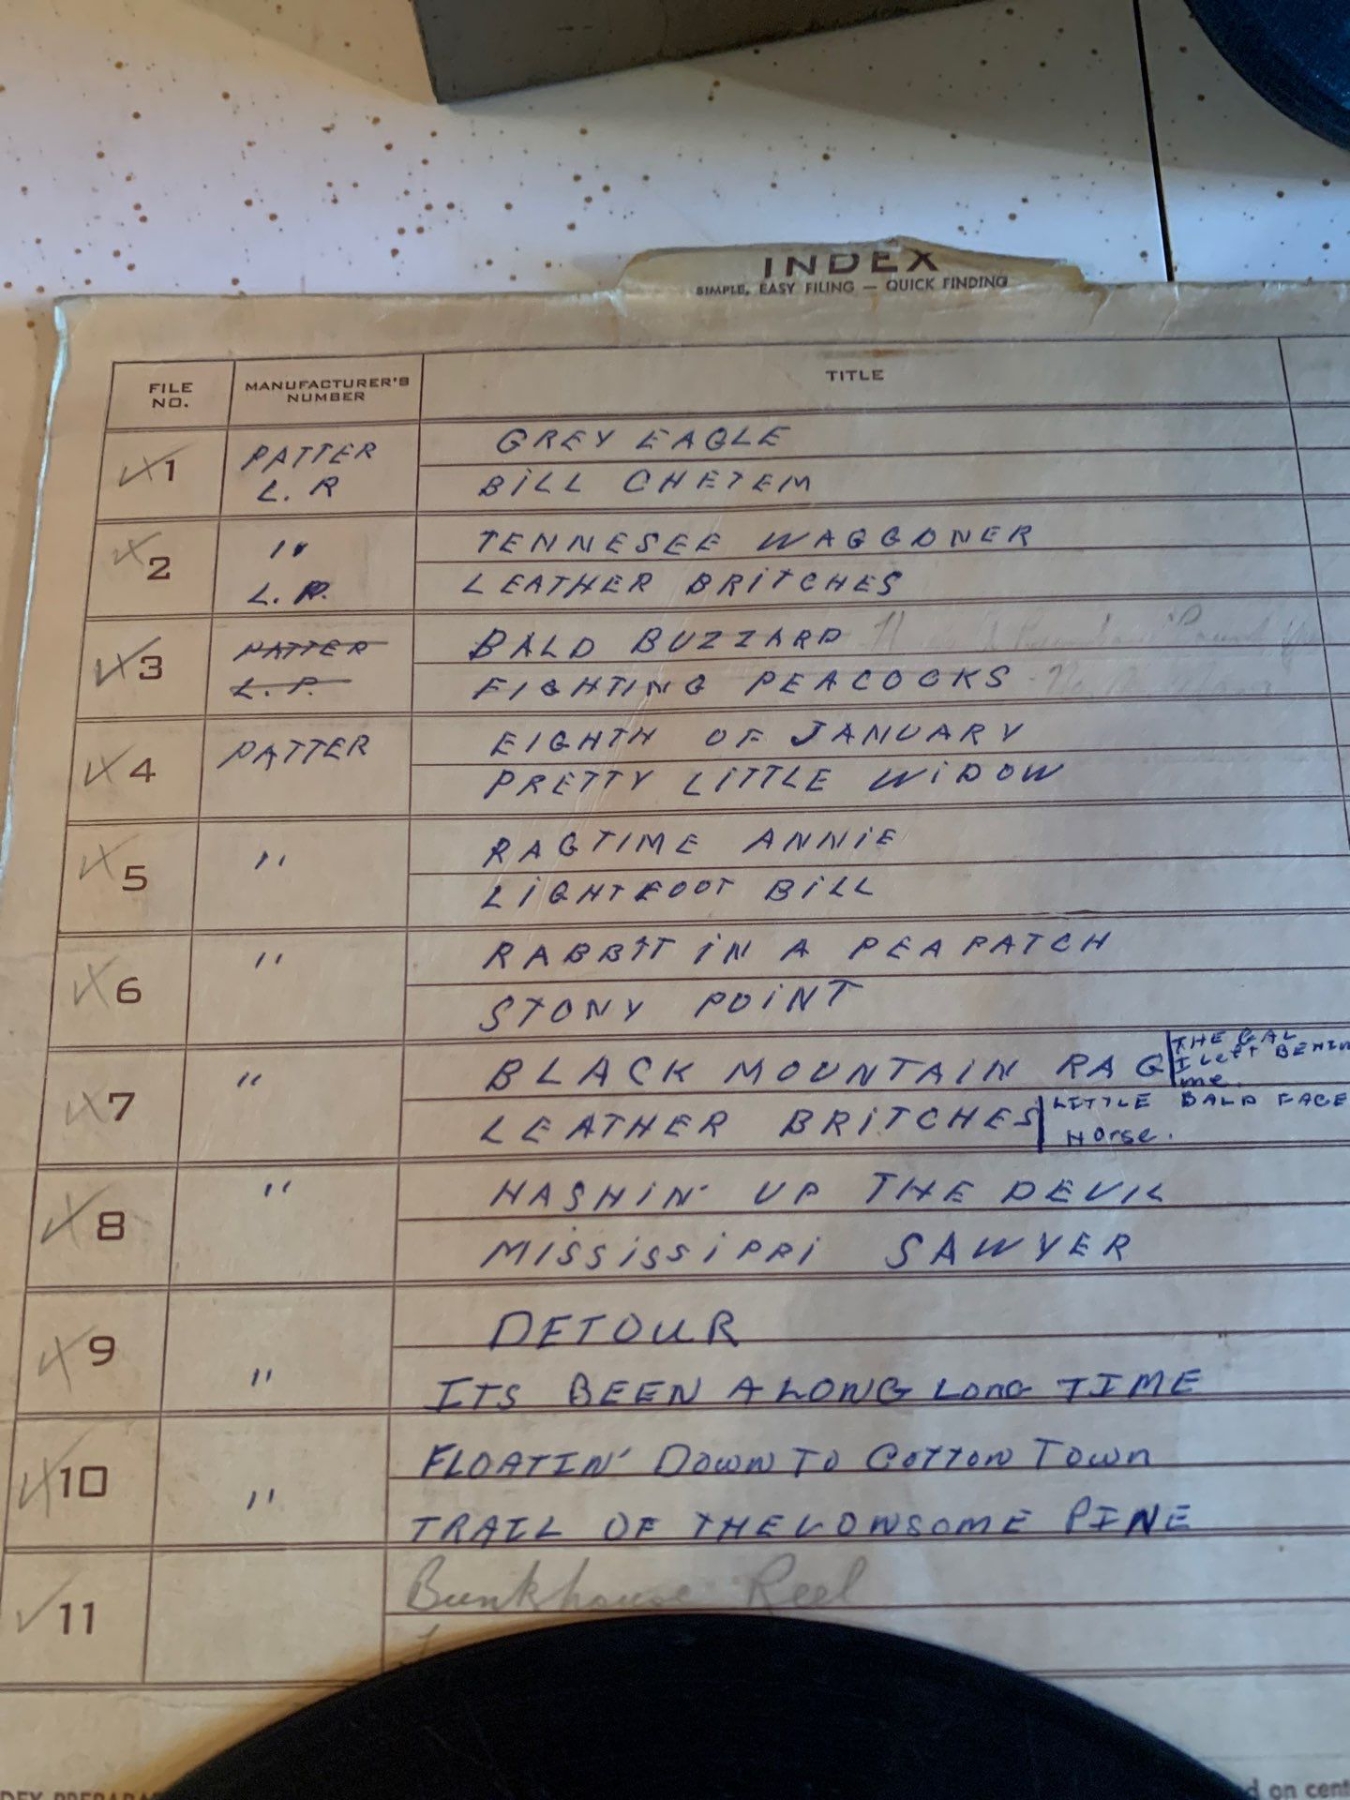 INDEX
SIMPLE, EASY FILING — QUICK FINDING
FILE NO. MANUFACTURER'S NUMBER TITLE
1 PATTER GREY EAGLE
L. R BILL CHETEM
2 " TENNESEE WAGGONER
L. P. LEATHER BRITCHES
3 PATTER BALD BUZZARD
L. P. FIGHTING PEACOCKS
4 PATTER EIGHTH OF JANUARY
PRETTY LITTLE WIDOW
5 " RAGTIME ANNIE
LIGHTFOOT BILL
6 " RABBIT IN A PEA PATCH
STONY POINT
7 " BLACK MOUNTAIN RAG THE GAL I Left BEHIN me.
LEATHER BRITCHES LITTLE BALD FACE Horse.
8 " HASHIN' UP THE DEVIL
MISSISSIPPI SAWYER
9 DETOUR
" ITS BEEN A LONG Long TIME
10 FLOATIN' Down To Cotton Town
" TRAIL OF THE LONSOME PINE
11 Bunkhouse Reel